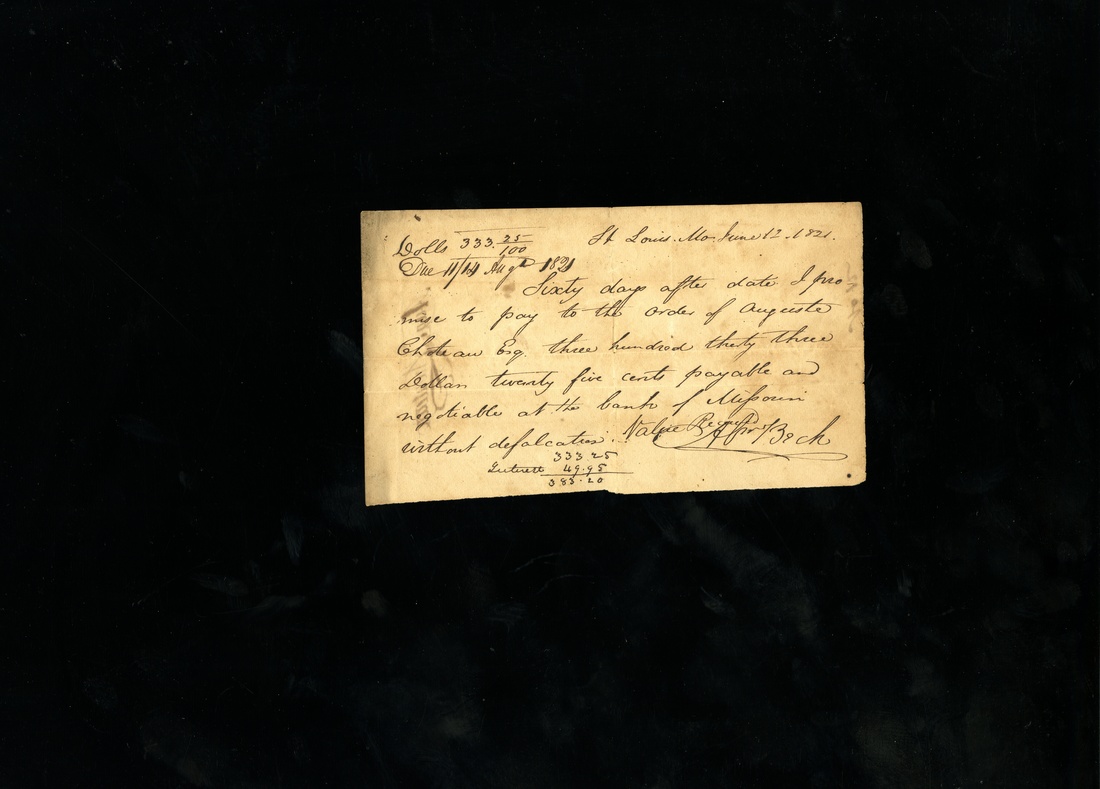 Dolls 333. 25/100 St Louis. Mo. June 12. 1821.
Due 11/14 Augt 1821
Sixty days after date I pro
mise to pay to the order of Auguste
Choteau Esq. three hundred thirty three
Dollars twenty five cents payable and
negotiable at the bank of Missouri
without defalcation. Value Received
Beck
333.25
Interest 49.95
383.20